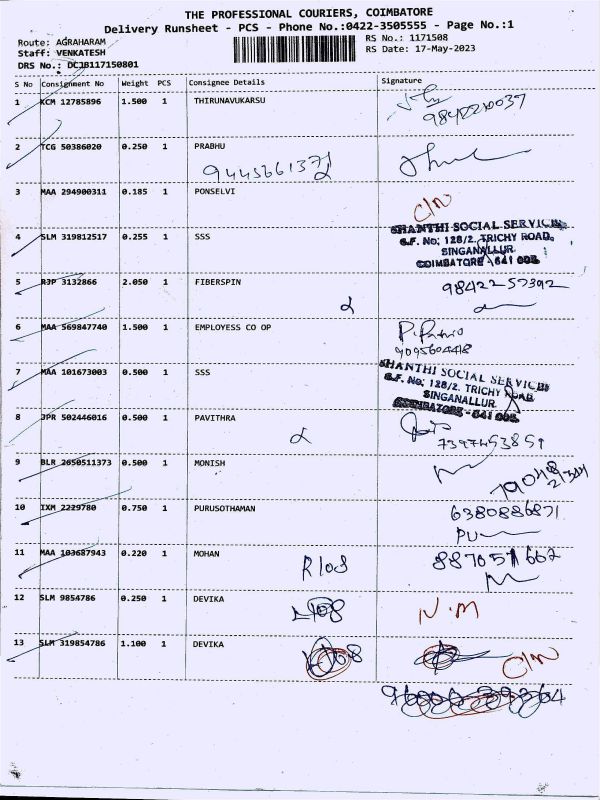 THE PROFESSIONAL COURIERS, COIMBATORE
Delivery Runsheet - PCS - Phone No.:0422-3505555 - Page No.:1
Route: AGRAHARAM
RS No.: 1171508
Staff: VENKATESH
RS Date: 17-May-2023
DRS No.: DCJB117150801
S No Consignment No Weight PCS Consignee Details Signature
1 KCM 12785896 1.500 1 THIRUNAVUKARSU
9842210037
2 TCG 50386020 0.250 1 PRABHU
3 MAA 294900311 0.185 1 PONSELVI C/N
SHANTHI SOCIAL SERVICES
4 SLM 319812517 0.255 1 SSS S.F. No; 128/2. TRICHY ROAD,
SINGANALLUR
COIMBATORE - 641 005.
5 RJP 3132866 2.050 1 FIBERSPIN 98422 57392
6 MAA 569847740 1.500 1 EMPLOYESS CO OP
9095604418
SHANTHI SOCIAL SERVICES
7 MAA 101673003 0.500 1 SSS S.F. No; 128/2. TRICHY ROAD
SINGANALLUR
COIMBATORE - 641 005.
8 JPR 502446016 0.500 1 PAVITHRA
7397453851
9 BLR 2650511373 0.500 1 MONISH
10 IXM 2229780 0.750 1 PURUSOTHAMAN 6380886871
11 MAA 103687943 0.220 1 MOHAN 8870571662
R108
12 SLM 9854786 0.250 1 DEVIKA L108 N.M
13 SLM 319854786 1.100 1 DEVIKA C/N